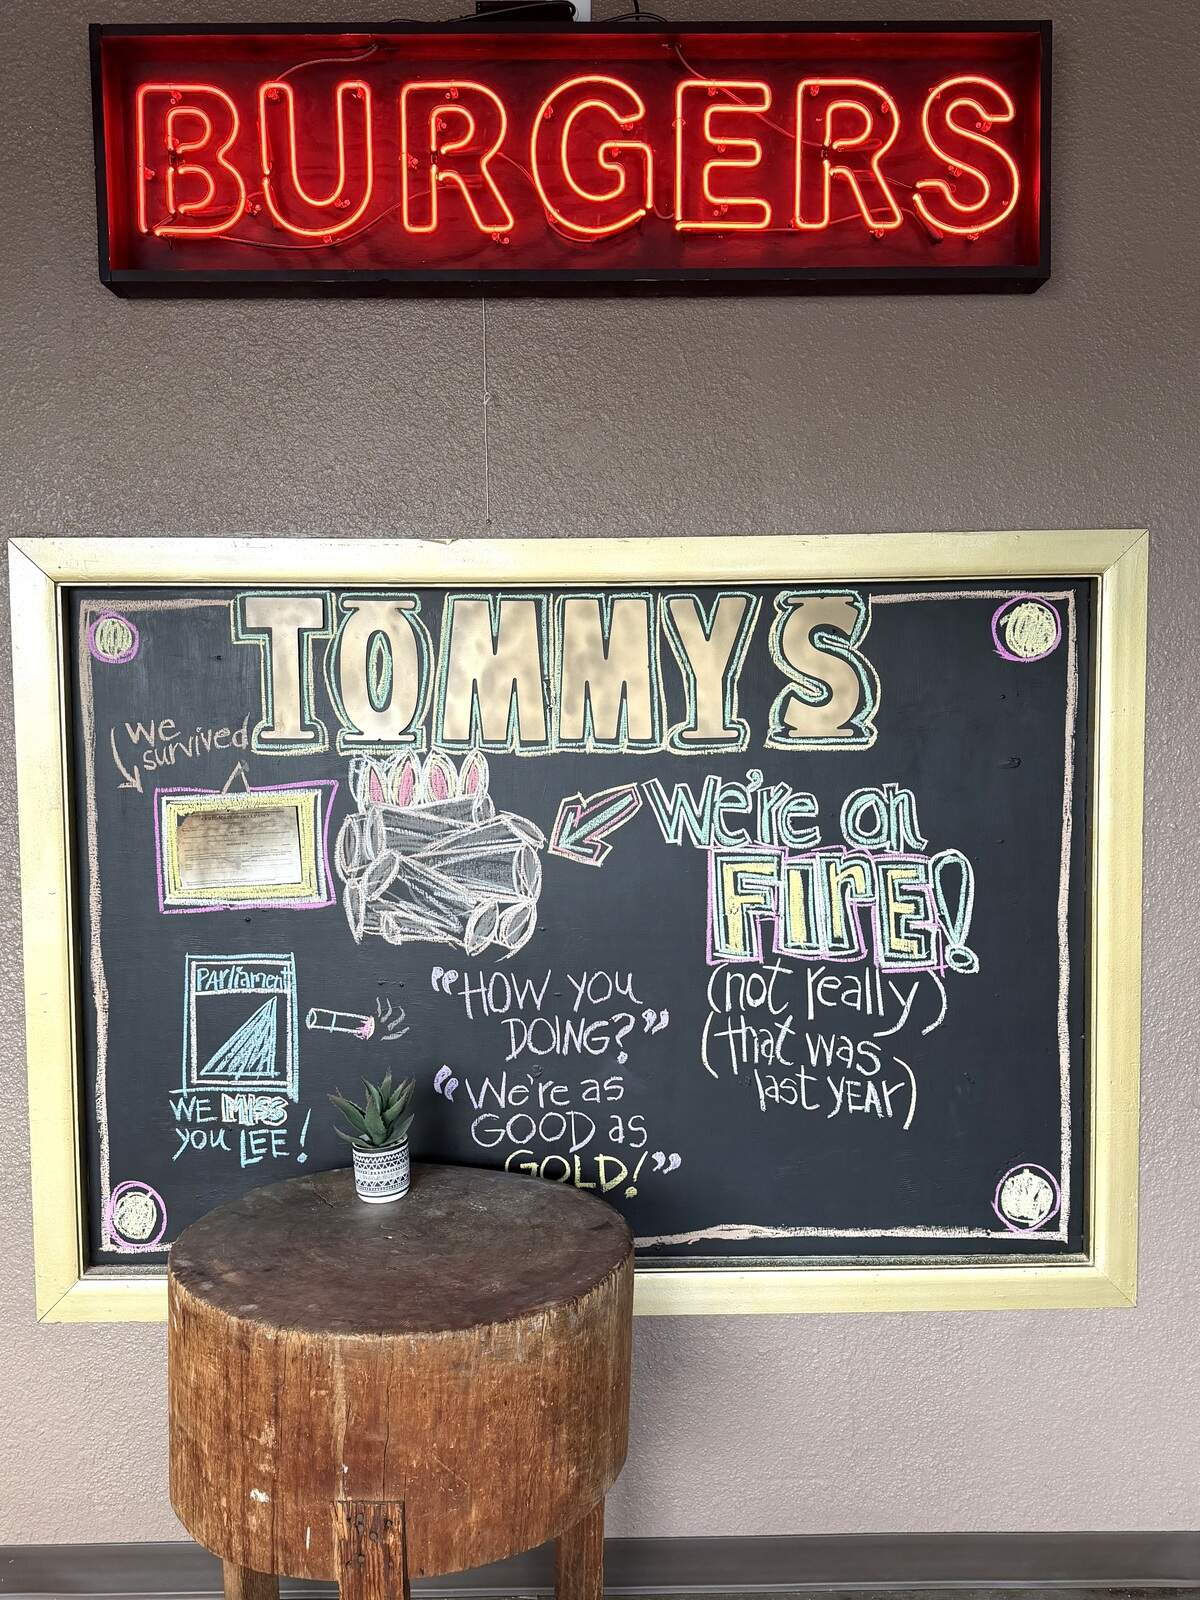 BURGERS
TOMMYS
we
survived
we're on
FIRE!
(not really)
(that was
last YEAR)
PARliament
WE MISS
you LEE!
"HOW you
DOING?"
"We're as
GOOD as
GOLD!"